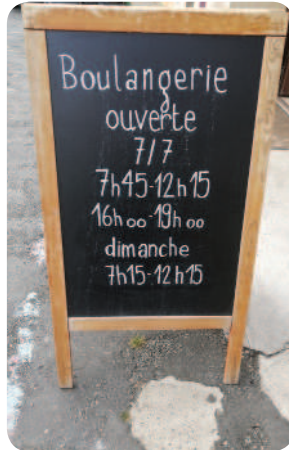 Boulangerie
ouverte
7/7
7h45-12h15
16hoo-19hoo
dimanche
7h15-12h15